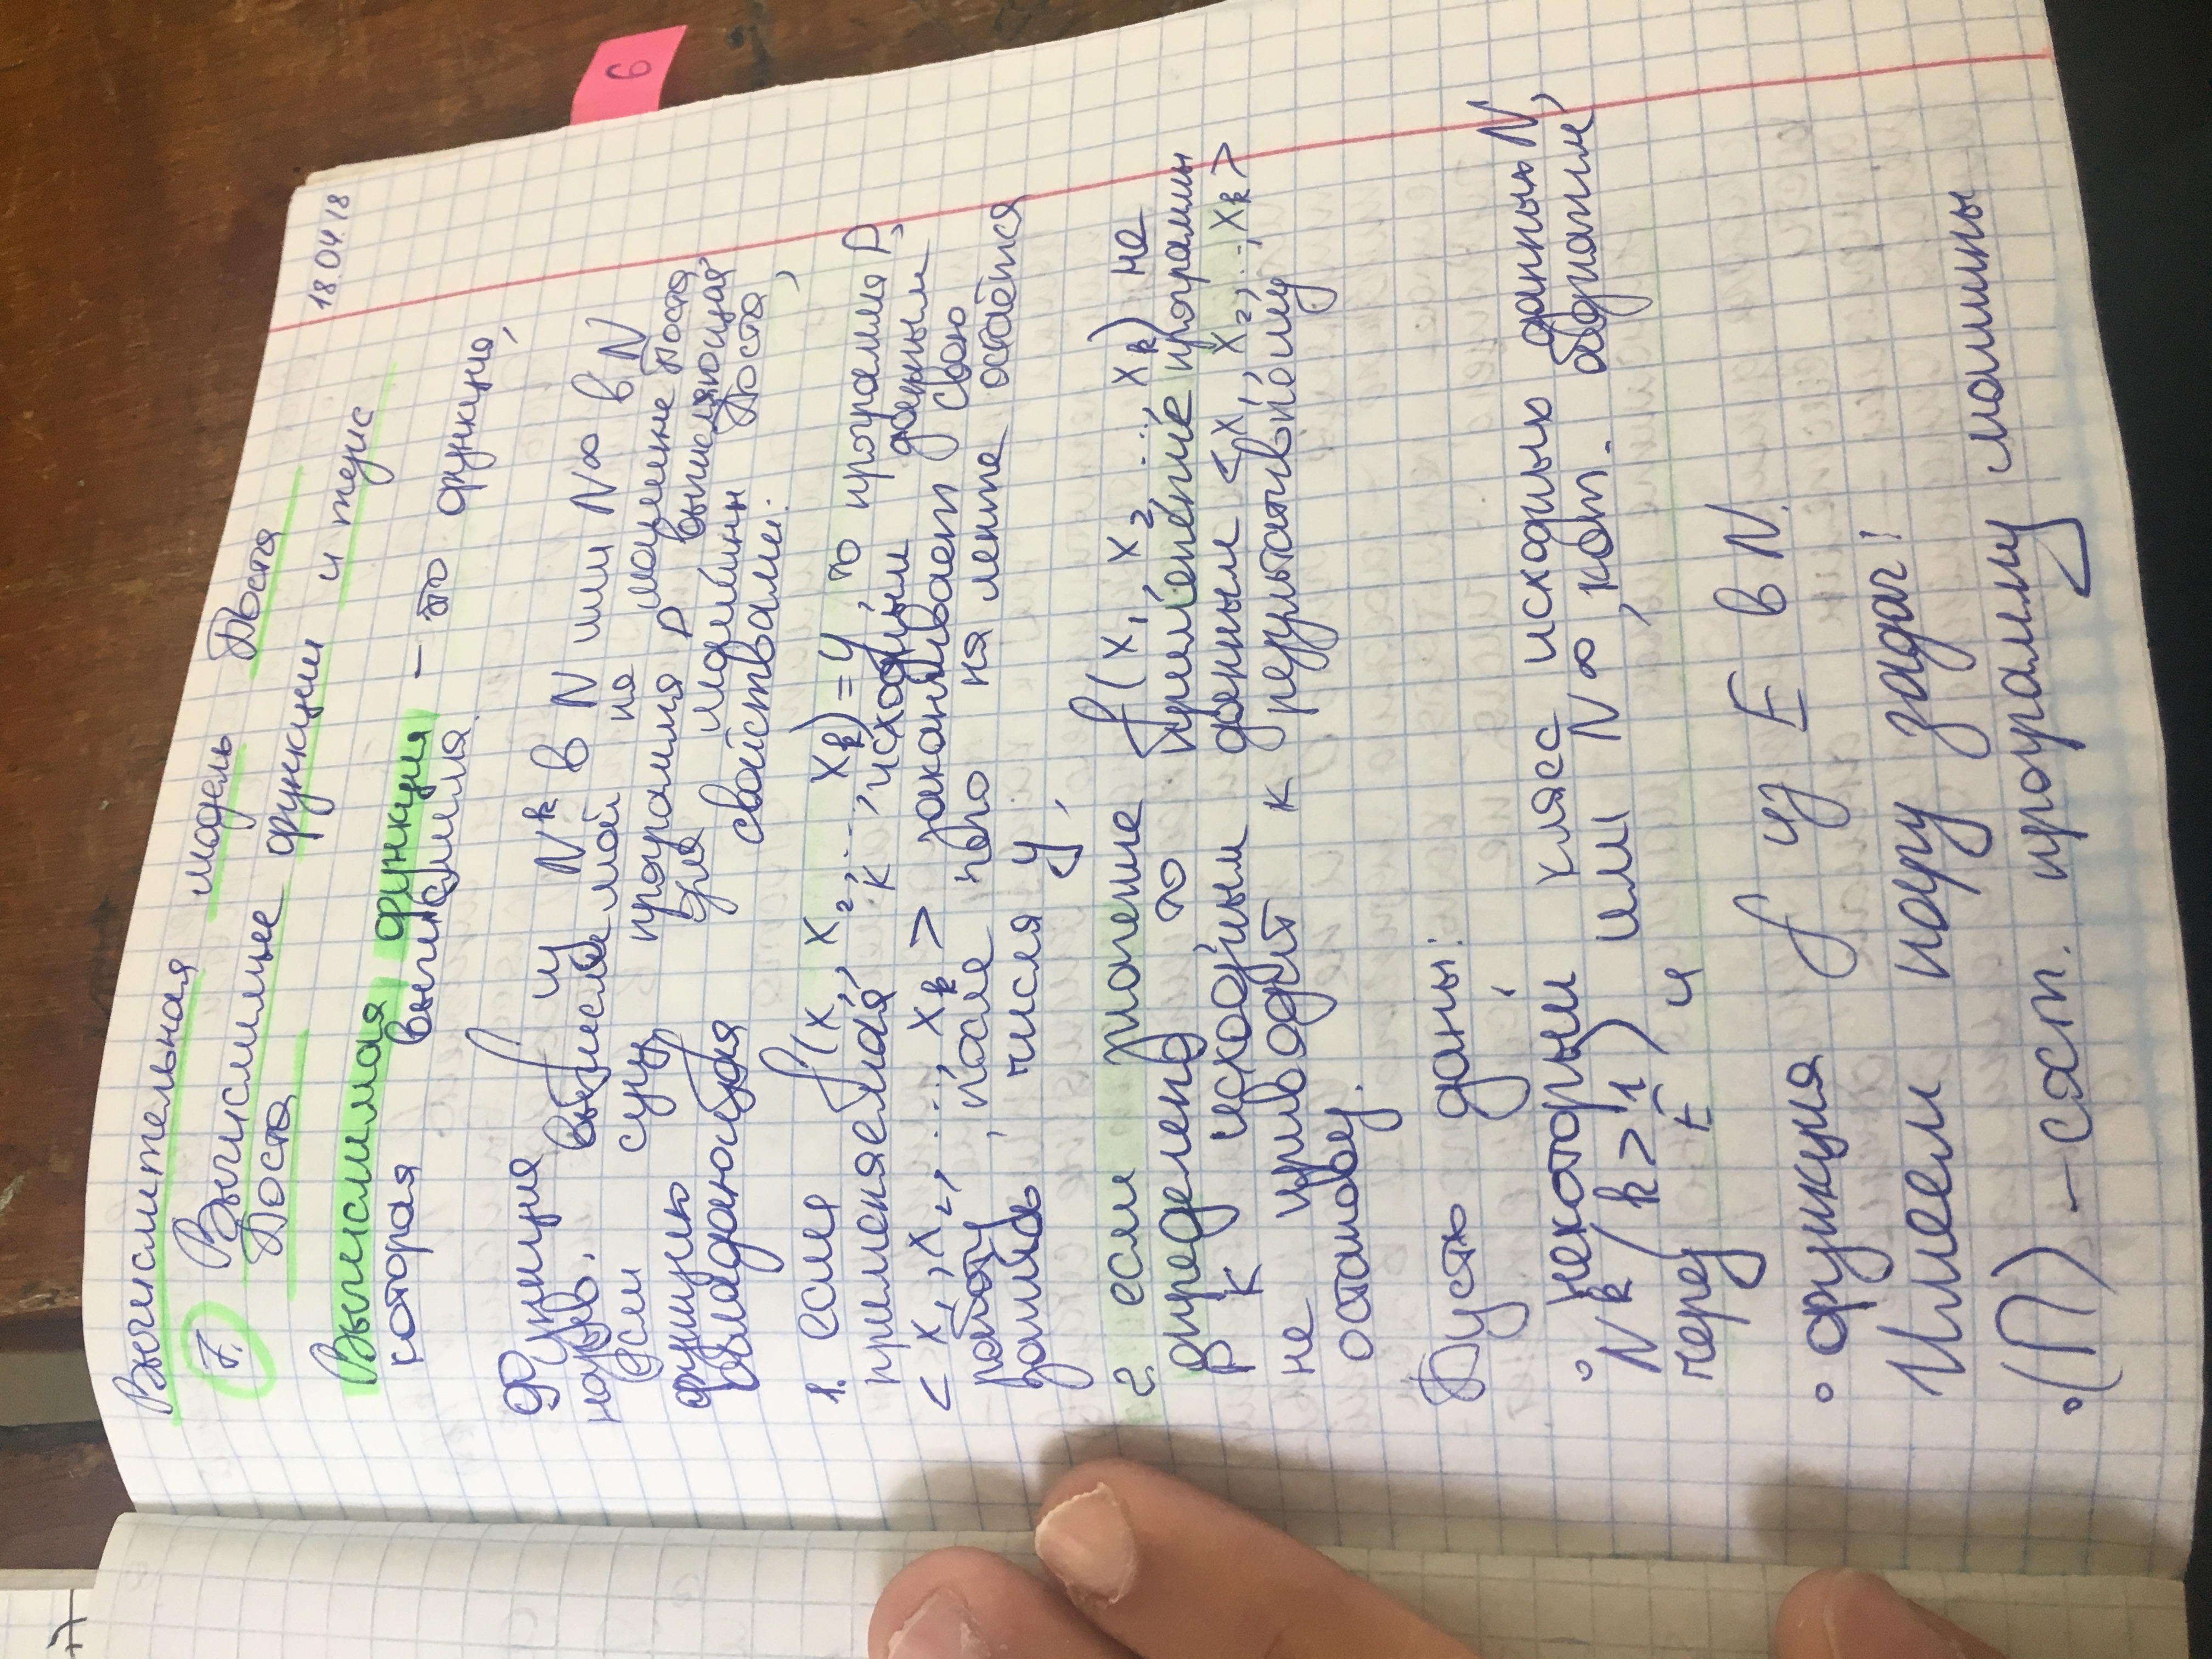 Вычислительная модель Поста
7. Вычислимые функции и тезис
Поста
18.04.18
Вычислимая функция – это функция,
которая вычислима.
Функция f из N^k в N или N^∞ в N
назыв. вычислимой на машине Поста,
если сущ. программа P, вычисляющая
функцию для машины Поста,
обладающая свойствами:
1. если f(x₁, x₂, ..., x_k) = y, то программа P,
применяемая к исходным данным
< x₁, x₂, ..., x_k > заканчивает свою
работу, после чего на ленте остаётся
запись числа y,
2. если значение f(x₁, x₂, ..., x_k) не
определено, то применение программы
P к исходным данным < x₁, x₂, .., x_k >
не приводит к результативному
останову.
Пусть даны:
◦ некоторый класс исходных данных N,
N^k (k > 1) или N^∞, кот. обозначим
через E и
◦ функция f из E в N.
Имеем пару задач:
◦ (П) – сост. программу машины
6